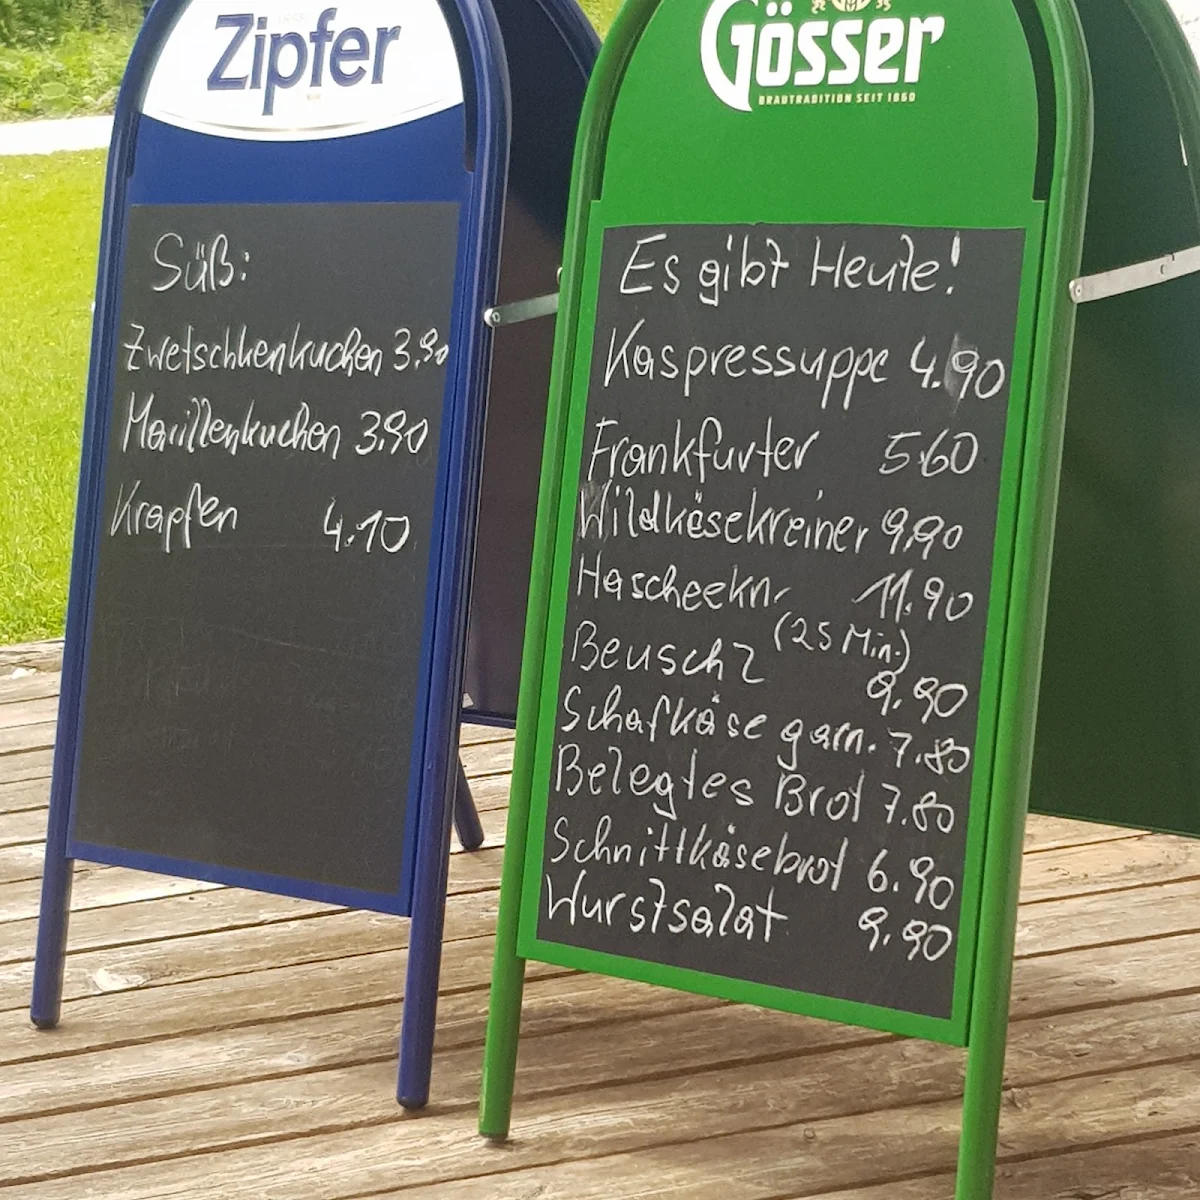 Zipfer
Süß:
Zwetschkenkuchen 3.90
Marillenkuchen 3.90
Krapfen 4.10
Gösser
BRAUTRADITION SEIT 1860
Es gibt Heute!
Kaspressuppe 4.90
Frankfurter 5.60
Wildkäsekreiner 9.90
Hascheekn. 11.90
(25 Min.)
Beuschl 9.90
Schafkäse garn. 7.80
Belegtes Brot 7.80
Schnittkäsebrot 6.90
Wurstsalat 9.90